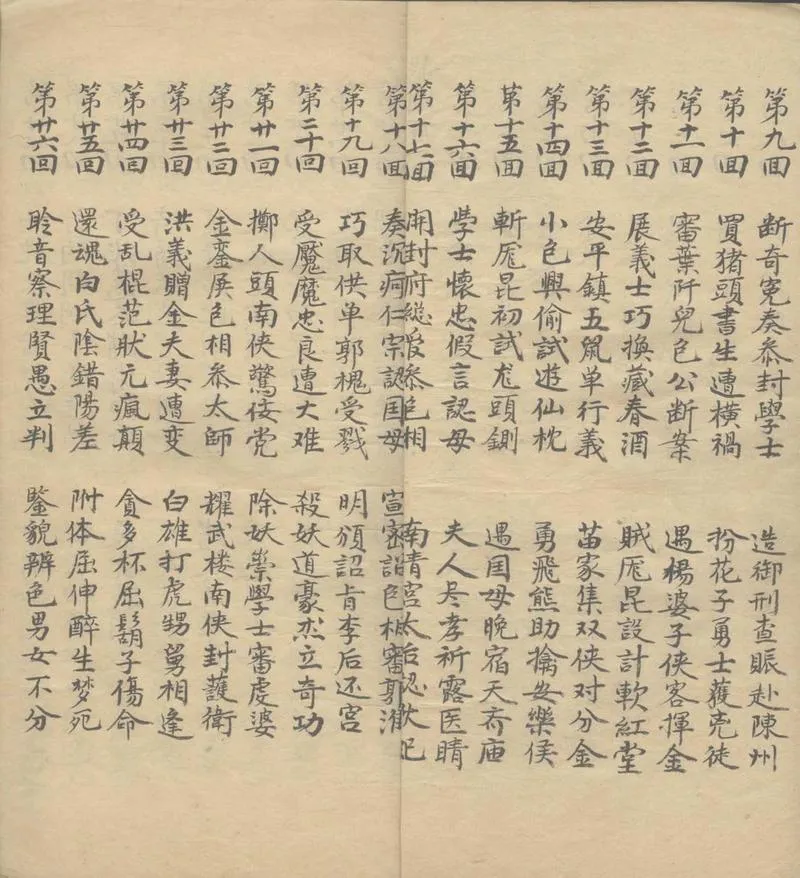 第九回 断奇寃奏叅封學士 造御刑查賑赴陳州
第十回 買猪頭書生遭橫禍 扮花子勇士獲兇徒
第十一回 審葉阡兒包公断案 遇楊婆子侠客揮金
第十二回 展義士巧換藏春酒 賊厖昆設計軟紅堂
第十三回 安平鎮五鼠单行義 苗家集双侠对分金
第十四回 小包興偷試遊仙枕 勇飛熊助擒安樂侯
第十五回 斬厖昆初試尨頭鍘 遇国母晚宿天斎庙
第十六回 學士懷忠假言認母 夫人尽孝祈露医睛
第十七回 開封府總叅包相 南清宫太后認狄妃
第十八回 奏沉疴仁宗認国母 宣密詔包相審郭淮
第十九回 巧取供单郭槐受戮 明頒詔旨李后还宮
第二十回 受魘魔忠良遭大难 殺妖道豪杰立奇功
第廿一回 擲人頭南侠驚佞党 除妖祟學士審虔婆
第廿二回 金銮殿包相叅太師 耀武楼南侠封護衛
第廿三回 洪義贈金夫妻遭变 白雄打虎甥舅相逢
第廿四回 受乱棍范狀元瘋顛 貪多杯屈鬍子傷命
第廿五回 還魂白氏陰錯陽差 附体屈伸醉生梦死
第廿六回 聆音察理賢愚立判 鑒貌辨色男女不分